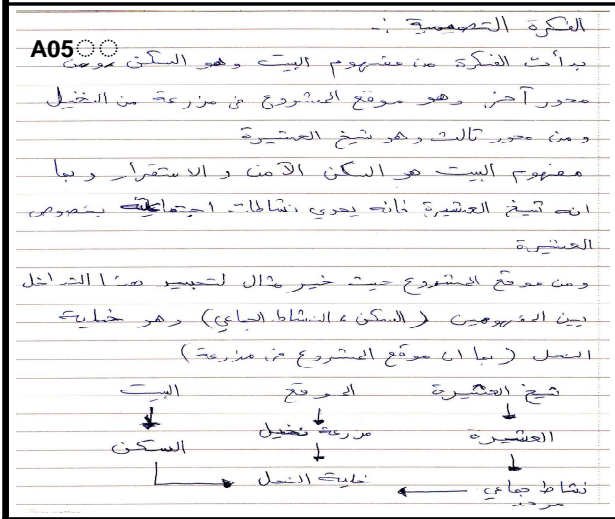 الفكرة التصميمية :-
A05
بدأت الفكرة من مفهوم البيت وهو السكن ومن
محور آخر وهو موقع المشروع في مزرعة من النخيل
ومن محور ثالث وهو شيخ العشيرة
مفهوم البيت هو السكن الآمن و الاستقرار وبما
انه شيخ العشيرة فانه يحوي نشاطات اجتماعية بخصوص
العشيرة
ومن موقع المشروع حيث خير مثال لتجسيد هذا التداخل
بين المفهومين (السكن ، النشاط الجماعي) وهو خلية
النحل (بما ان موقع المشروع في مزرعة)
شيخ العشيرة الموقع البيت
العشيرة مزرعة نخيل السكن
نشاط جماعي خلية النحل